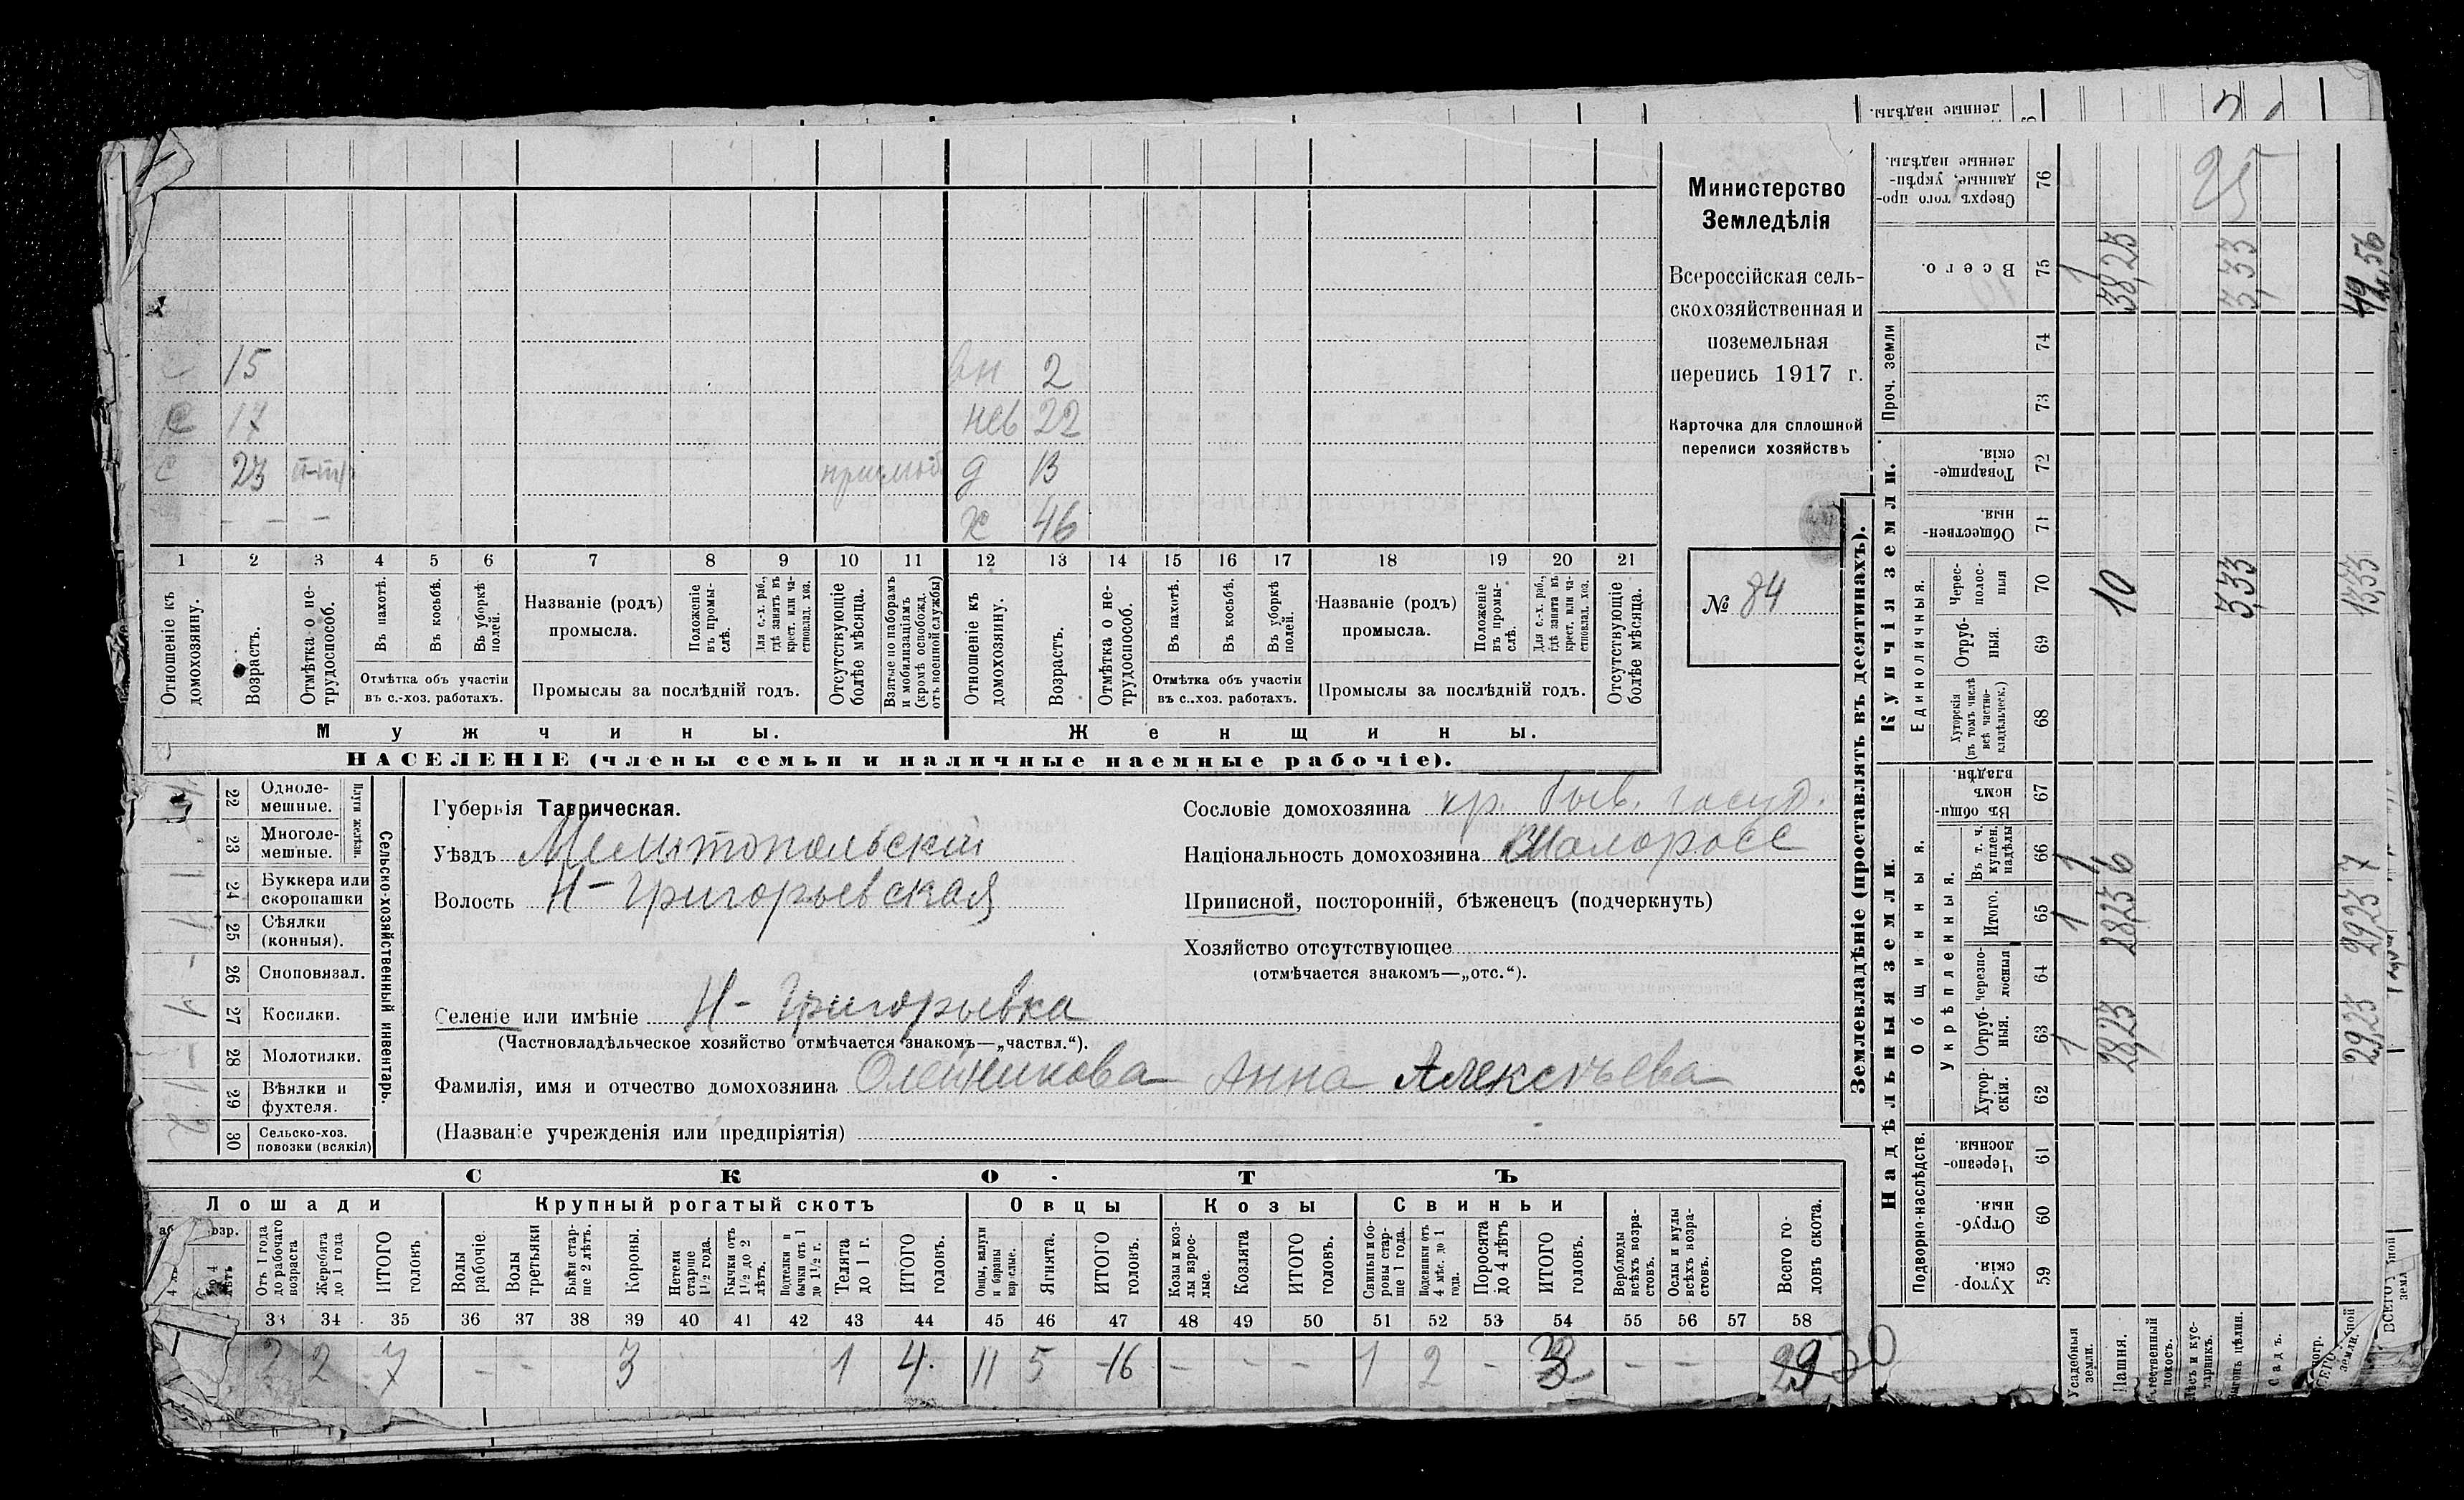 с 15 вн 2
с 17 нев 22
с 23 призмоб. д 13
— — — х 46
1 2 3 4 5 6 7 8 9 10 11 12 13 14 15 16 17 18 19 20 21
Отношеніе къ домохозяину.
Возрастъ.
Отмѣтка о нетрудоспособ.
Въ пахотѣ.
Въ косьбѣ.
Въ уборкѣ полей.
Отмѣтка объ участіи въ с.-хоз. работахъ.
Названіе (родъ) промысла.
Положеніе въ промыслѣ.
Для с.-х. раб., гдѣ занятъ въ крест. или частновлад. хоз.
Промыслы за послѣдній годъ.
Отсутствующіе болѣе мѣсяца.
Взятые по наборамъ и мобилизаціямъ (кромѣ освобожд. отъ военной службы)
Отношеніе къ домохозяину.
Возрастъ.
Отмѣтка о нетрудоспособ.
Въ пахотѣ.
Въ косьбѣ.
Въ уборкѣ полей.
Отмѣтка объ участіи въ с.-хоз. работахъ.
Названіе (родъ) промысла.
Положеніе въ промыслѣ.
Для с.-х. раб., гдѣ занята въ крест. или частновлад. хоз.
Промыслы за послѣдній годъ.
Отсутствующіе болѣе мѣсяца.
Мужчины. Женщины.
НАСЕЛЕНІЕ (члены семьи и наличные наемные рабочіе).
Министерство
Земледѣлія
Всероссійская сель-
скохозяйственная и
поземельная
перепись 1917 г.
Карточка для сплошной
переписи хозяйствъ
№ 84
22 Одноле-мешные.
23 Многоле-мешные.
Плуги желѣзн.
24 Буккера или скоропашки
25 Сѣялки (конныя).
26 Сноповязал.
27 Косилки.
28 Молотилки.
29 Вѣялки и фухтеля.
30 Сельско-хоз. повозки (всякія)
Сельско-хозяйственный инвентарь.
Губернія Таврическая.
Уѣздъ Мелитопольский
Волость Н-Григорьевская
Селеніе или имѣніе Н-Григорьевка
(Частновладѣльческое хозяйство отмѣчается знакомъ—„частвл.“).
Фамилія, имя и отчество домохозяина Олейникова Анна Алексѣева
(Названіе учрежденія или предпріятія)
Сословіе домохозяина кр. быв. госуд.
Національность домохозяина Малоросс
Приписной, посторонній, бѣженецъ (подчеркнуть)
Хозяйство отсутствующее
(отмѣчается знакомъ—„отс.“).
СКОТЪ
Лошади Крупный рогатый скотъ Овцы Козы Свиньи
Отъ 1 года до рабочаго возраста
Жеребята до 1 года
ИТОГО головъ
Волы рабочіе.
Волы третьяки
Быки старше 2 лѣтъ.
Коровы.
Нетели старше 1½ года.
Бычки отъ 1½ до 2 лѣтъ.
Подтелки и бычки отъ 1 до 1½ г.
Телята до 1 г.
ИТОГО головъ.
Овцы, валухи и бараны взрослые.
Ягнята.
ИТОГО головъ.
Козы и козлы взрослые.
Козлята
ИТОГО головъ.
Свиньи и боровы старше 1 года.
Подсвинки отъ 4 мѣс. до 1 года.
Поросята до 4 лѣтъ
ИТОГО головъ.
Верблюды всѣхъ возрастовъ.
Ослы и мулы всѣхъ возрастовъ.
Всего головъ скота.
33 34 35 36 37 38 39 40 41 42 43 44 45 46 47 48 49 50 51 52 53 54 55 56 57 58
2 2 7 — — 3 1 4. 11 5 16 — — — 1 2 — 3 — — 29 30
Землевладѣніе (проставлять въ десятинахъ).
Надѣльныя земли. Купчія земли. Проч. земли
Подворно-наслѣдств.
Общинныя.
Укрѣпленныя.
Единоличныя.
Хуторскія. 59
Отрубныя. 60
Черезполосныя. 61
Хуторскія. 62
Отрубныя. 63
Черезполосныя 64
Итого. 65
Въ т. ч. куплен. надѣлы 66
Въ общинномъ владѣн. 67
Хуторскія (въ томъ числѣ всѣ частновладѣльческ.) 68
Отрубныя. 69
Чересполосныя 70
Общественныя. 71
Товарищескія. 72
73
74
Всего. 75
Сверхъ того проданные, укрѣпленные надѣлы. 76
ленные надѣлы.
Усадебныя земли. 1 1 1 1
Пашня. 28,25 28,25 6 10 38,25
Естественный покосъ.
Лѣсъ и кустарникъ.
3,33 3,33 25
Садъ.
29,25 29,25 7 13,33 42,56